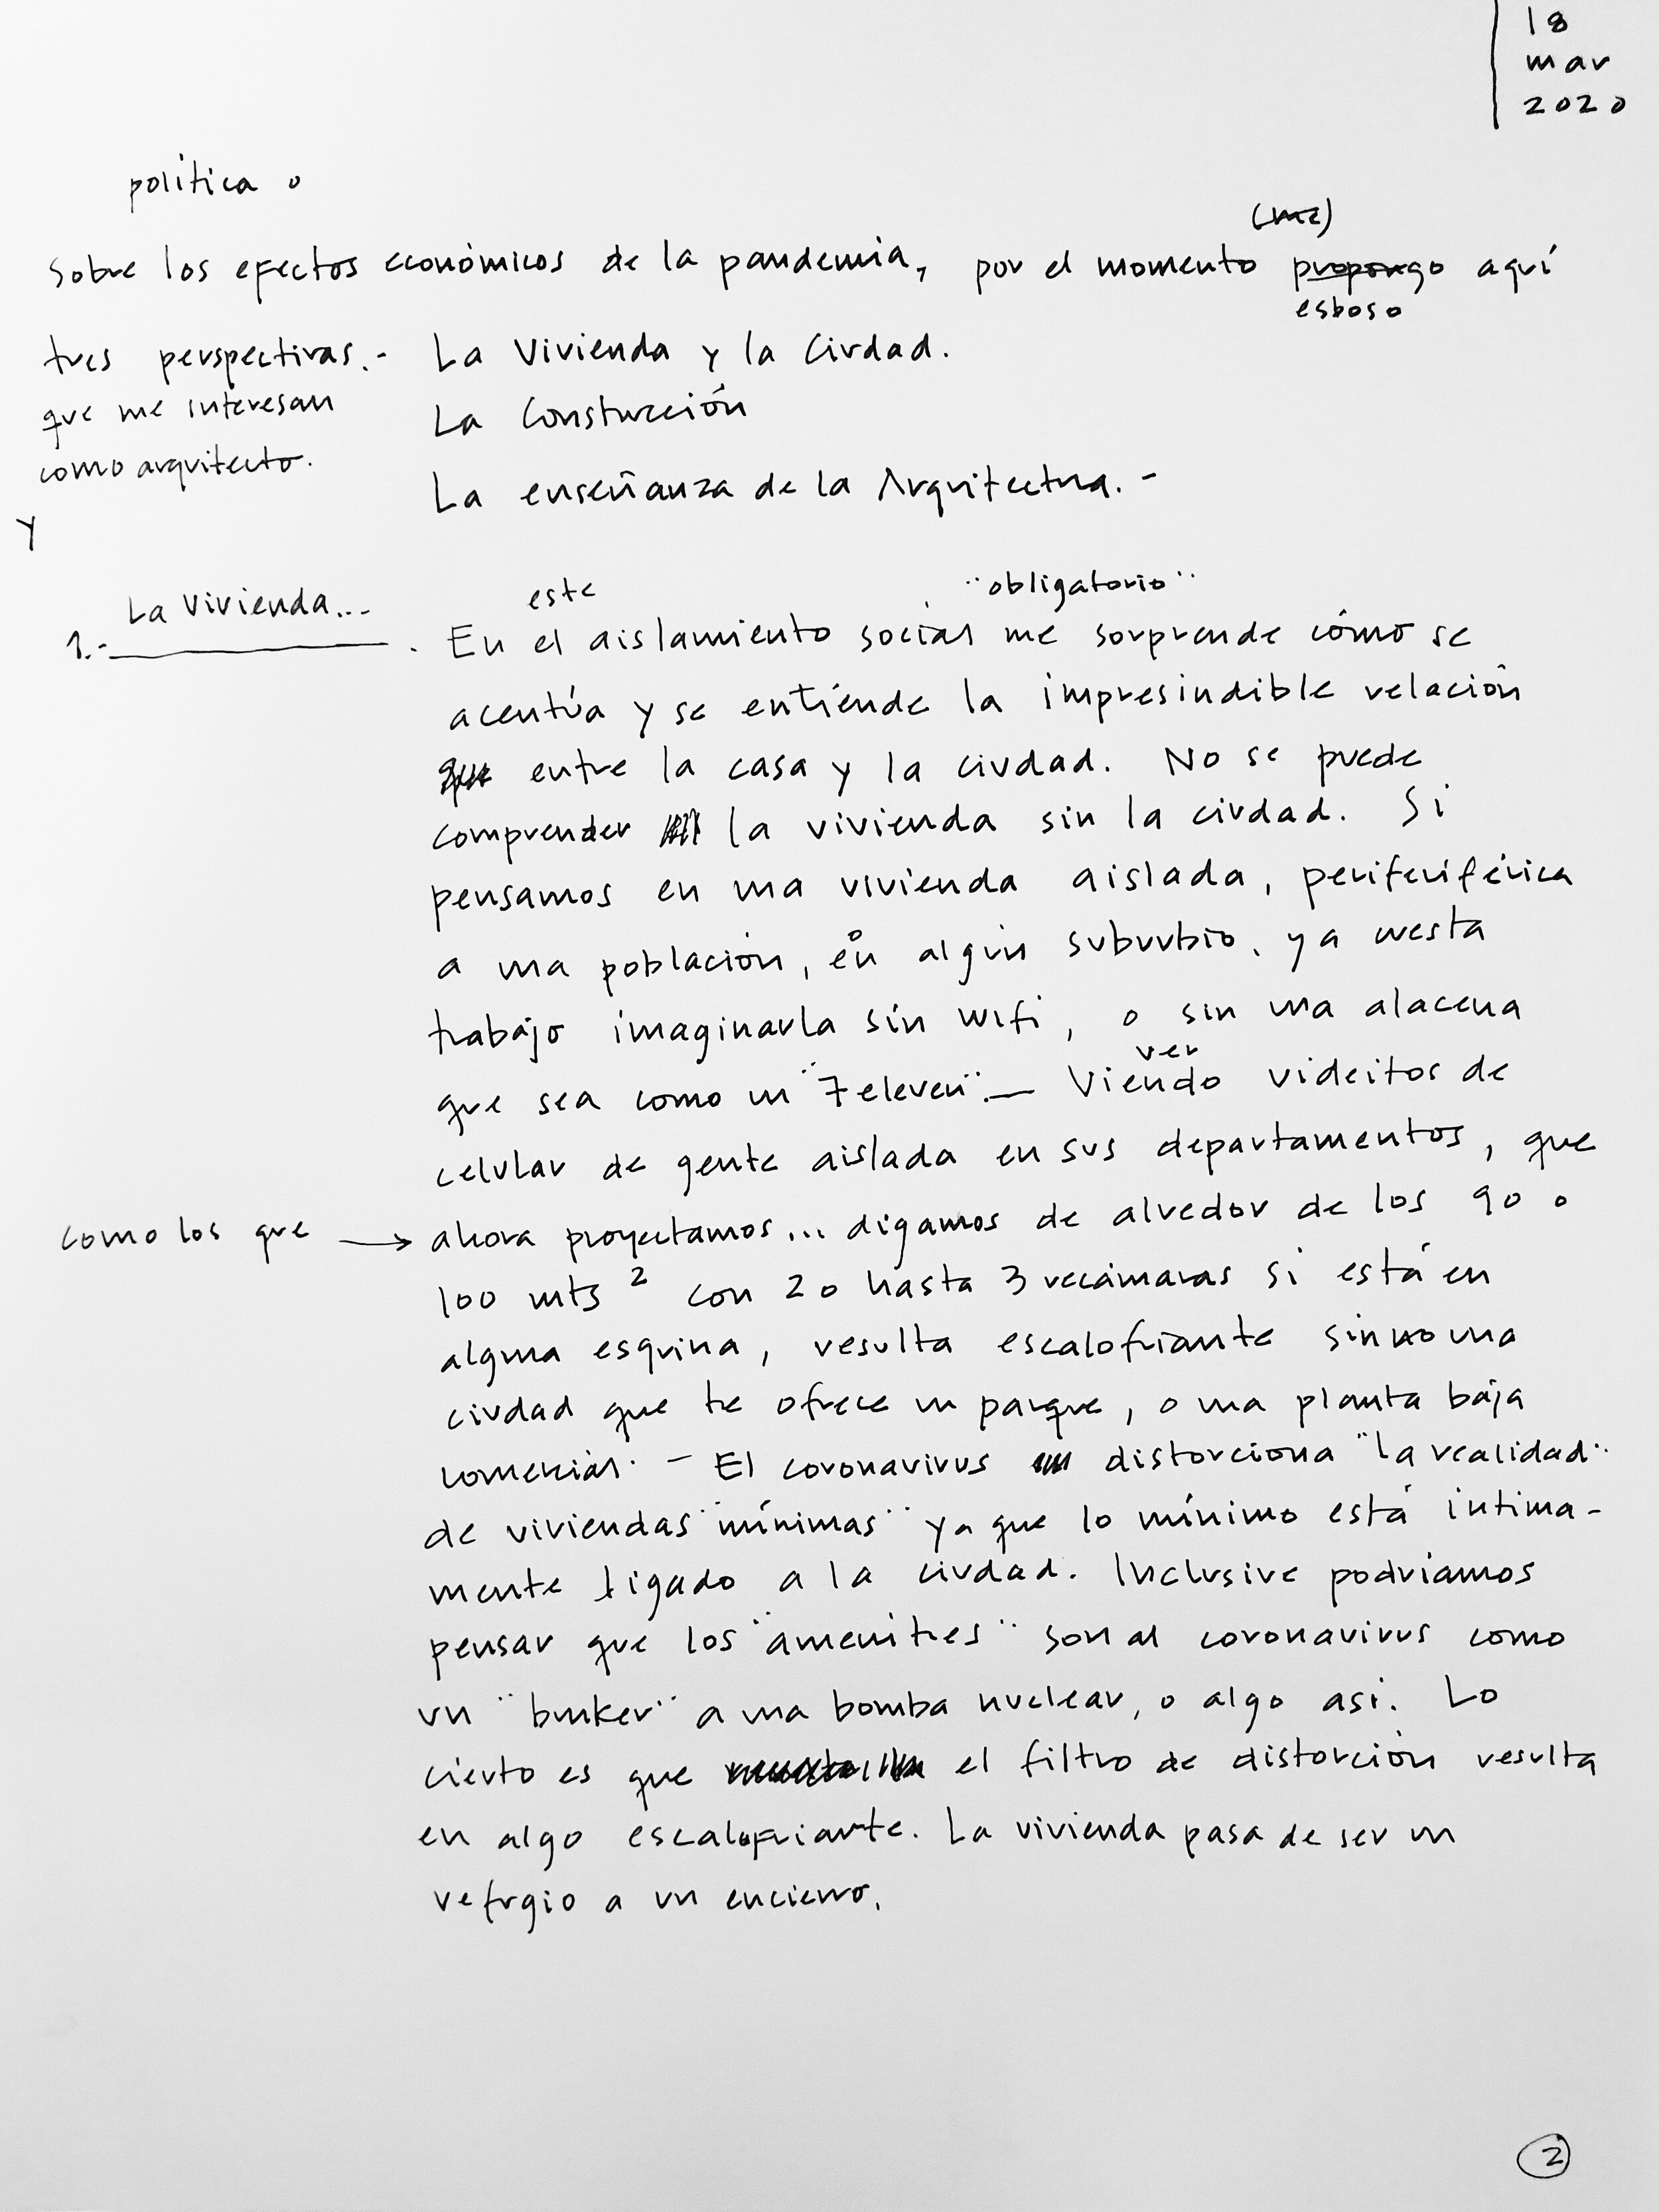 18
mar
2020
política o
(me)
Sobre los efectos económicos de la pandemia, por el momento propongo aquí
esboso
tres perspectivas.- La Vivienda y la Ciudad.
que me interesan
La Construcción
como arquitecto.
La enseñanza de la Arquitectura.-
Y
La Vivienda...
este "obligatorio"
1.- . En el aislamiento social me sorprende cómo se
acentúa y se entiende la impresindible relación
que entre la casa y la ciudad. No se puede
comprender la vivienda sin la ciudad. Si
pensamos en una vivienda aislada, periferiférica
a una población, en algún suburbio, ya cuesta
trabajo imaginarla sin wifi, o sin una alacena
que sea como un "7eleven".— Viendo videitos de
ver
celular de gente aislada en sus departamentos, que
como los que → ahora proyectamos... digamos de alrededor de los 90 o
100 mts ² con 2 o hasta 3 recámaras si está en
alguna esquina, resulta escalofriante sin no una
ciudad que te ofrece un parque, o una planta baja
comercial. - El coronavirus distorciona "la realidad"
de viviendas "mínimas" ya que lo mínimo está intima-
mente ligado a la ciudad. Inclusive podríamos
pensar que los "amenities" son al coronavirus como
un "bunker" a una bomba nuclear, o algo así. Lo
cierto es que el filtro de distorción resulta
en algo escalofriante. La vivienda pasa de ser un
refugio a un encierro.
2